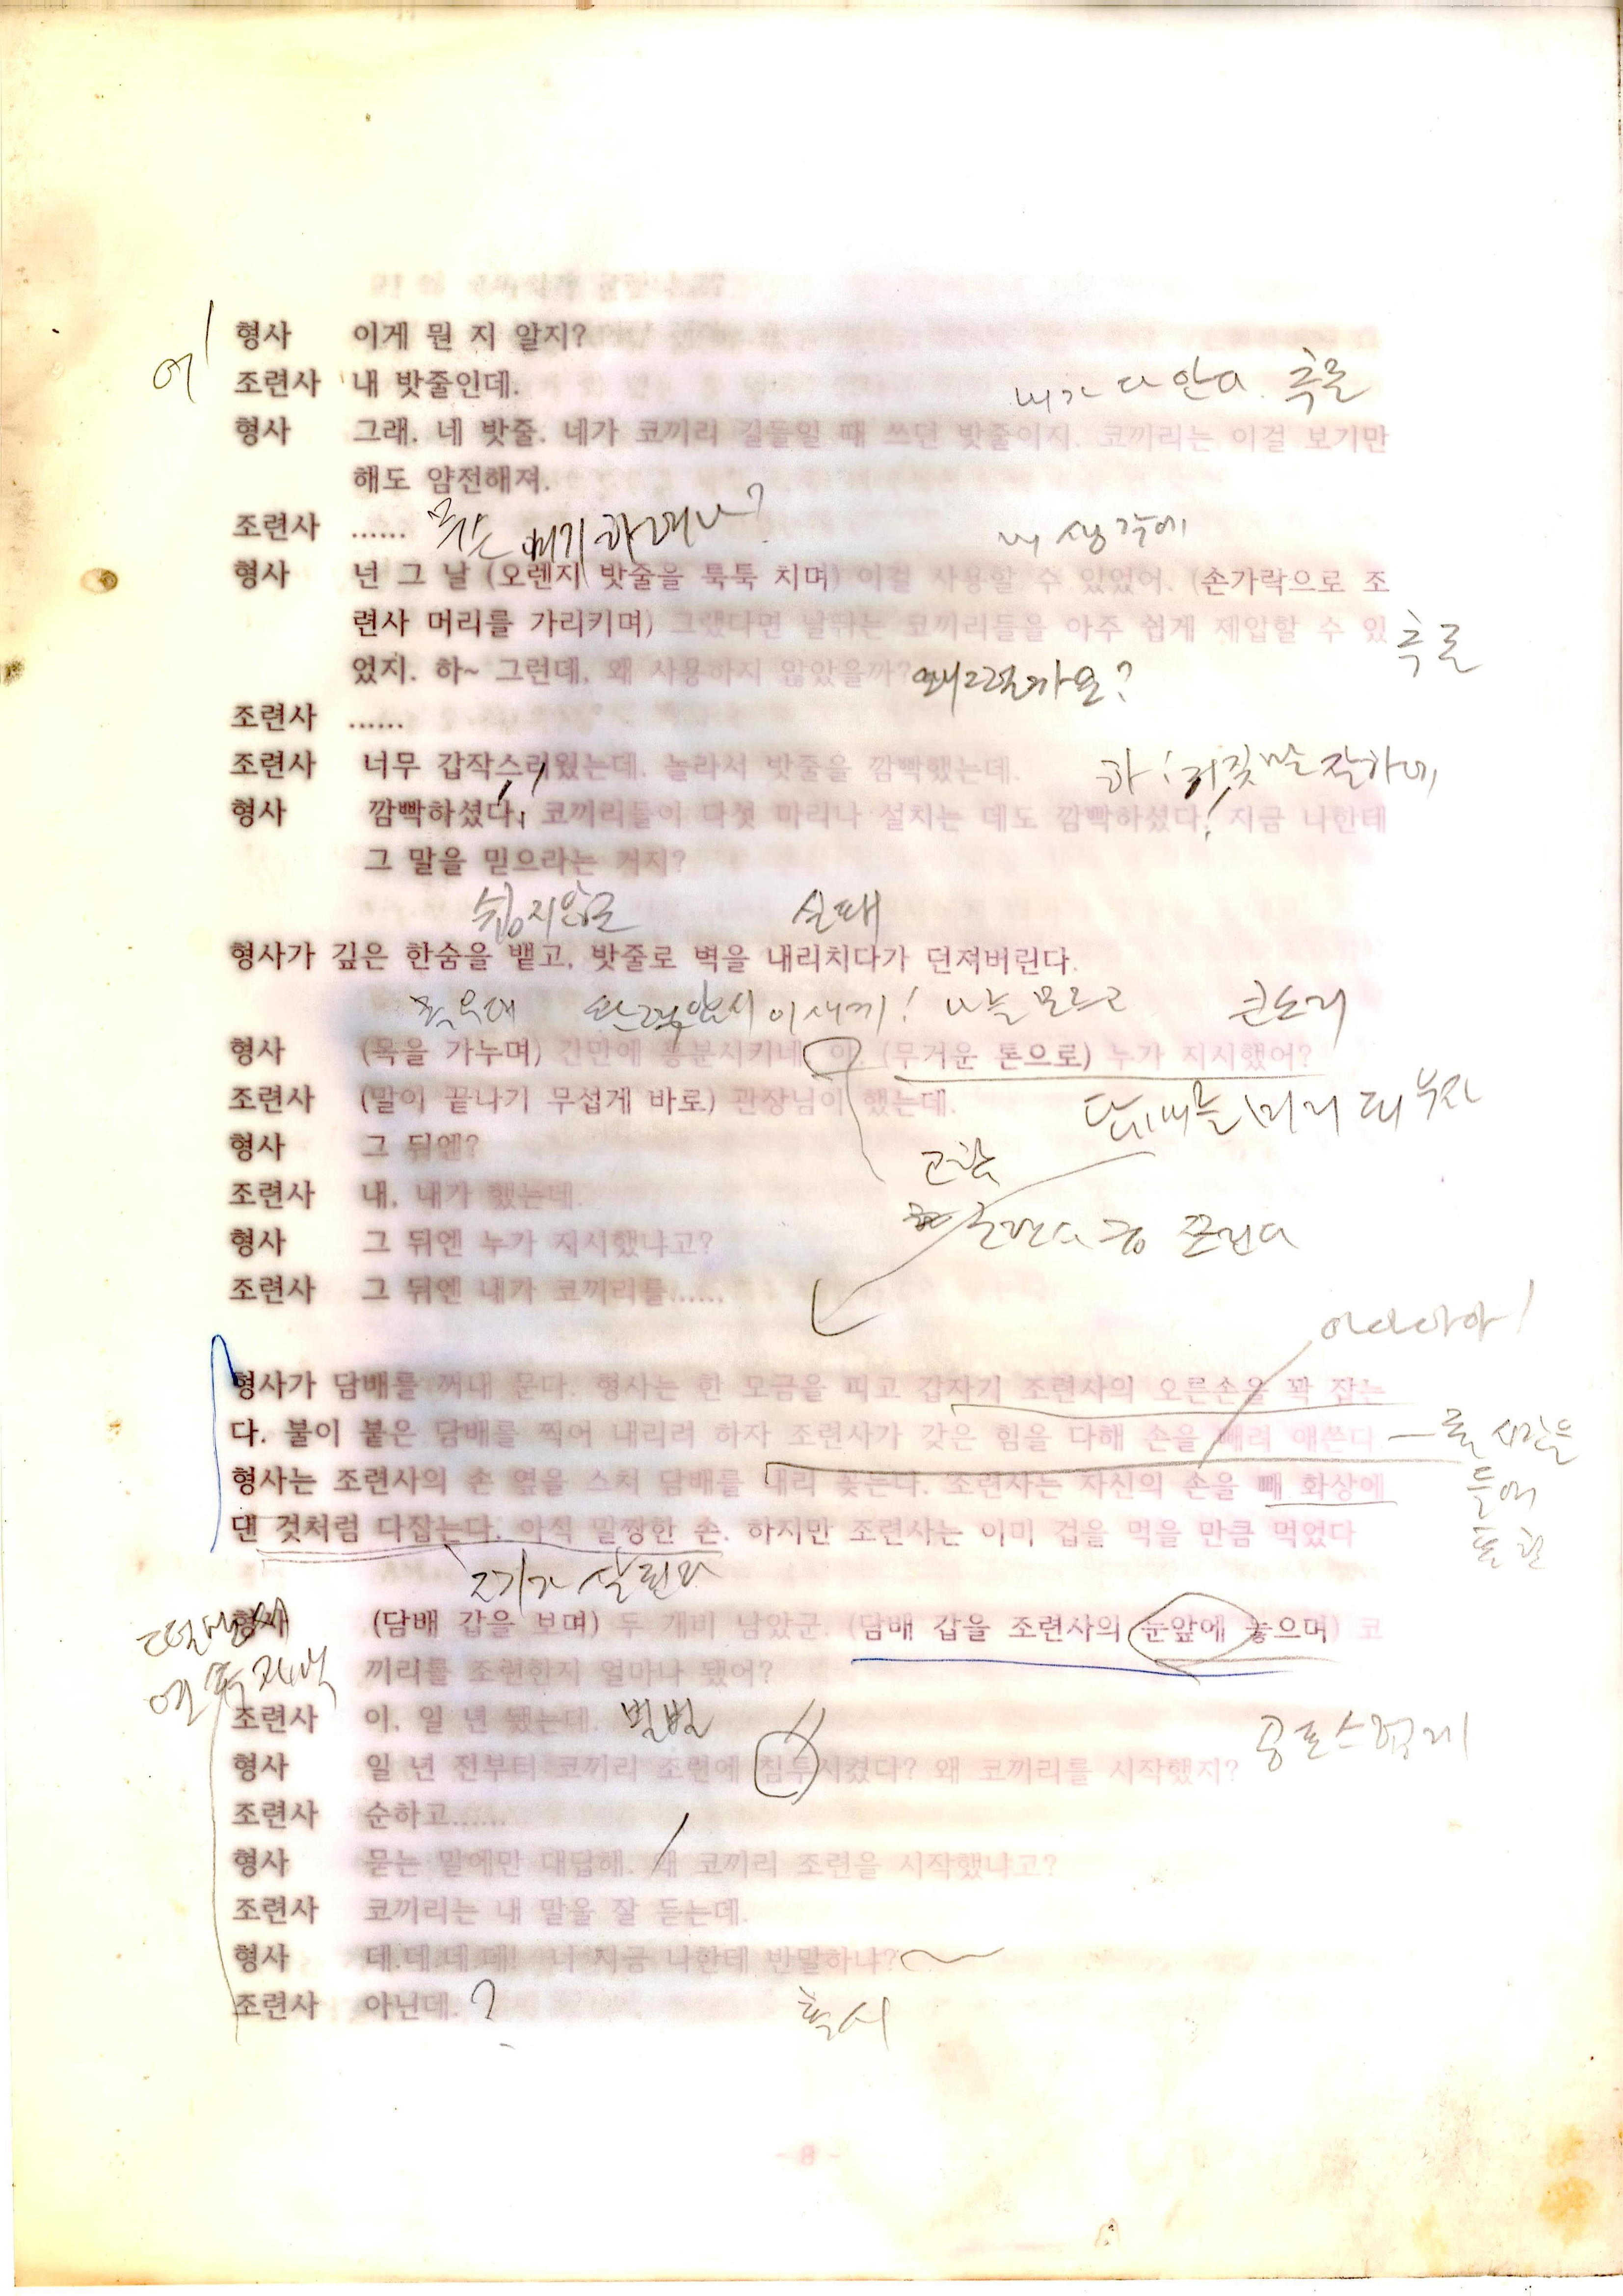 형사 이게 뭔 지 알지?
어 조련사 내 밧줄인데.
내가 다 안다. 추궁
형사 그래. 네 밧줄. 네가 코끼리 길들일 때 쓰던 밧줄이지. 코끼리는 이걸 보기만
해도 얌전해져.
조련사 ......
내 생각에
형사 넌 그 날 (오렌지 밧줄을 툭툭 치며) 이걸 사용할 수 있었어. (손가락으로 조
련사 머리를 가리키며) 그랬다면 날뛰는 코끼리들을 아주 쉽게 제압할 수 있
었지. 하~ 그런데, 왜 사용하지 않았을까? 왜그럴까요?
조련사 ......
조련사 너무 갑작스러웠는데. 놀라서 밧줄을 깜빡했는데. 하! 거짓말 잘하네
형사 깜빡하셨다! 코끼리들이 다섯 마리나 설치는 데도 깜빡하셨다! 지금 나한테
그 말을 믿으라는 거지?
쉽지않군 실패
형사가 깊은 한숨을 뱉고, 밧줄로 벽을 내리치다가 던져버린다.
이새끼! 나를 모르고 큰소리
형사 (목을 가누며) 간만에 흥분시키네. 야. (무거운 톤으로) 누가 지시했어?
조련사 (말이 끝나기 무섭게 바로) 관장님이 했는데.
형사 그 뒤엔?
조련사 내, 내가 했는데.
형사 그 뒤엔 누가 지시했냐고?
조련사 그 뒤엔 내가 코끼리를......
아아아아!
형사가 담배를 꺼내 문다. 형사는 한 모금을 피고 갑자기 조련사의 오른손을 꽉 잡는
다. 불이 붙은 담배를 찍어 내리려 하자 조련사가 갖은 힘을 다해 손을 빼려 애쓴다
형사는 조련사의 손 옆을 스쳐 담배를 내리 꽂는다. 조련사는 자신의 손을 빼 화상에
댄 것처럼 다잡는다. 아직 말짱한 손. 하지만 조련사는 이미 겁을 먹을 만큼 먹었다
형사 (담배 갑을 보며) 두 개비 남았군. (담배 갑을 조련사의 눈앞에 놓으며) 코
끼리를 조련한지 얼마나 됐어?
조련사 이, 일 년 됐는데. 벌벌
공포스럽게
형사 일 년 전부터 코끼리 조련에 침투시켰다? 왜 코끼리를 시작했지?
조련사 순하고......
형사 묻는 말에만 대답해. 왜 코끼리 조련을 시작했냐고?
조련사 코끼리는 내 말을 잘 듣는데.
형사 데.데.데.데! 너 지금 나한테 반말하냐?
조련사 아닌데. ?
혹시
- 8 -